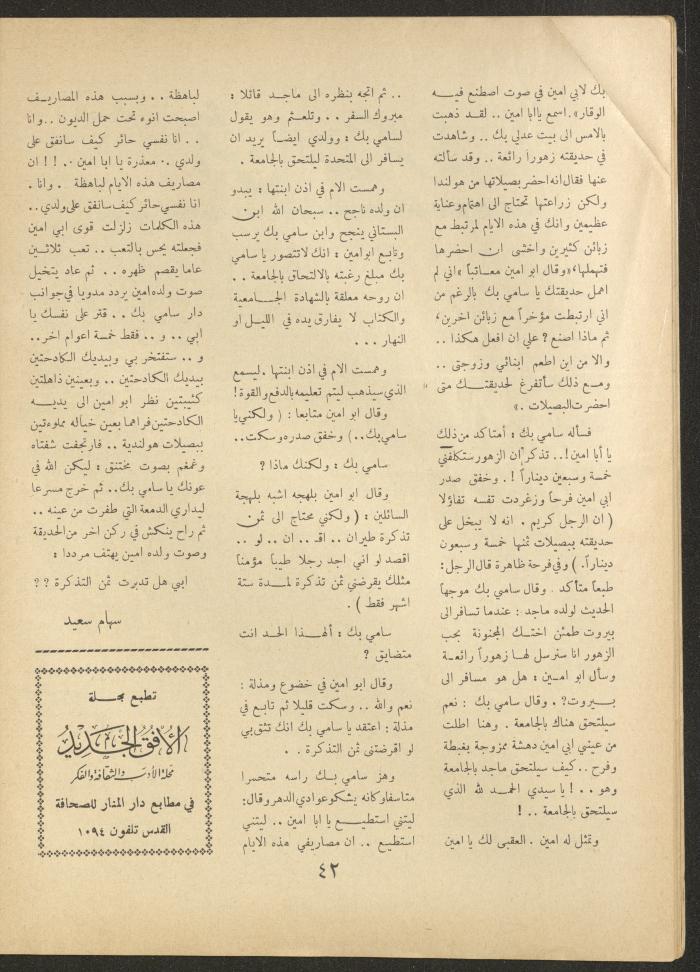 بك لابي امين في صوت اصطنع فيه
الوقار» . اسمع يا ابا امين .. لقد ذهبت
بالامس الى بيت عدلي بك .. وشاهدت
في حديقته زهوراً رائعة .. وقد سألته
عنها فقال انه احضر بصيلاتها من هولندا
ولكن زراعتها تحتاج الى اهتمام وعناية
عظيمين وانك في هذه الايام لمرتبط مع
زبائن كثيرين واخشى ان احضرها
فتهملها، «وقال ابو امين معاتباً» اني لم
اهمل حديقتك يا سامي بك بالرغم من
اني ارتبطت مؤخراً مع زبائن اخرين،
ثم ماذا اصنع ? علي ان افعل هكذا ..
والا من اين اطعم ابنائي وزوجتي ..
ومع ذلك سأتفرغ لحديقتك متى
احضرت البصيلات .»
فسأله سامي بك : أمتاكد من ذلك
يا أبا امين !.. تذكر ان الزهور ستكلفني
خمسة وسبعين ديناراً ! . وخفق صدر
ابي امين فرحاً وزغردت نفسه تفاؤلا
( ان الرجل كريم . انه لا يبخل على
حديقته ببصيلات ثمنها خمسة وسبعون
ديناراً . ) وفي فرحة ظاهرة قال الرجل :
طبعاً متأكد . وقال سامي بك موجها
الحديث لولده ماجد : عندما تسافر الى
بيروت طمئن اختك المجنونة بحب
الزهور انا سنرسل لها زهوراً رائعة
وسأل ابو امين : هل هو مسافر الى
بيروت ? . وقال سامي بك : نعم
سيلتحق هناك بالجامعة . وهنا اطلت
من عيني ابي امين دهشة ممزوجة بغبطة
وفرح .. كيف سيلتحق ماجد بالجامعة
وهو .. ! يا سيدي الحمد لله الذي
سيلتحق بالجامعة .. !
وتمثل له امين . العقبى لك يا امين
.. ثم اتجه بنظره الى ماجد قائلا :
مبروك السفر .. وتلعثم وهو يقول
لسامي بك : وولدي ايضاً يريد ان
يسافر الى المتحدة ليلتحق بالجامعة .
وهمست الام في اذن ابنتها : يبدو
ان ولده ناجح .. سبحان الله ابن
البستاني ينجح وابن سامي بك يرسب
وتابع ابو امين : انك لا تتصور يا سامي
بك مبلغ رغبته بالالتحاق بالجامعة ..
ان روحه معلقة بالشهادة الجامعية
والكتاب لا يفارق يده في الليل او
النهار ...
وهمست الام في اذن ابنتها . ليسمع
الذي سيذهب ليتم تعليمه بالدفع والقوة !
وقال ابو امين متابعا : ( ولكني يا
سامي بك .. ) وخفق صدره وسكت ..
سامي بك : ولكنك ماذا ?
وقال ابو امين بلهجة اشبه بلهجة
السائلين : ( ولكني محتاج الى ثمن
تذكرة طيران .. اقـ .. ان .. لو ..
اقصد لو اني اجد رجلا طيباً مؤمناً
مثلك يقرضني ثمن تذكرة لمدة ستة
اشهر فقط ) .
سامي بك : ألهذا الحد انت
متضايق ?
وقال ابو امين في خضوع ومذلة :
نعم والله .. وسكت قليلا ثم تابع في
مذلة : اعتقد يا سامي بك انك تثق بي
لو اقرضتني ثمن التذكرة . .
وهز سامي بك راسه متحسرا
متاسفا وكانه يشكو عوادي الدهر وقال :
ليتني استطيع يا ابا امين .. ليتني
استطيع .. ان مصاريفي هذه الايام
لباهظة .. وبسبب هذه المصاريف
اصبحت انوء تحت حمل الديون .. وانا
.. انا نفسي حائر كيف سانفق على
ولدي .. معذرة يا ابا امين .. !! ان
مصاريف هذه الايام لباهظة .. وانا .
انا نفسي حائر كيف سانفق على ولدي ..
هذه الكلمات زلزلت قوى ابي امين
فجعلته يحس بالتعب .. تعب ثلاثين
عاما يقصم ظهره .. ثم عاد يتخيل
صوت ولده امين يردد مدويا في جوانب
دار سامي بك .. قتر على نفسك يا
ابي .. و .. فقط خمسة اعوام اخر ..
و .. ستفتخر بي وبيديك الكادحتين
بيديك الكادحتين .. وبعينين ذاهلتين
كئيبتين نظر ابو امين الى يديه
الكادحتين فراهما بعين خياله مملوءتين
ببصيلات هولندية .. فارتجفت شفتاه
وغمغم بصوت مختنق : ليكن الله في
عونك يا سامي بك .. ثم خرج مسرعا
ليداري الدمعة التي طفرت من عينه ..
ثم راح ينكش في ركن اخر من الحديقة
وصوت ولده امين يهتف مرددا :
ابي هل تدبرت ثمن التذكرة ? ?
سهام سعيد
تطبع مجلة
الأفق الجديد
مجلة الأدب والثقافة والفكر
في مطابع دار المنار للصحافة
القدس تلفون ١٠٩٤
٤٢